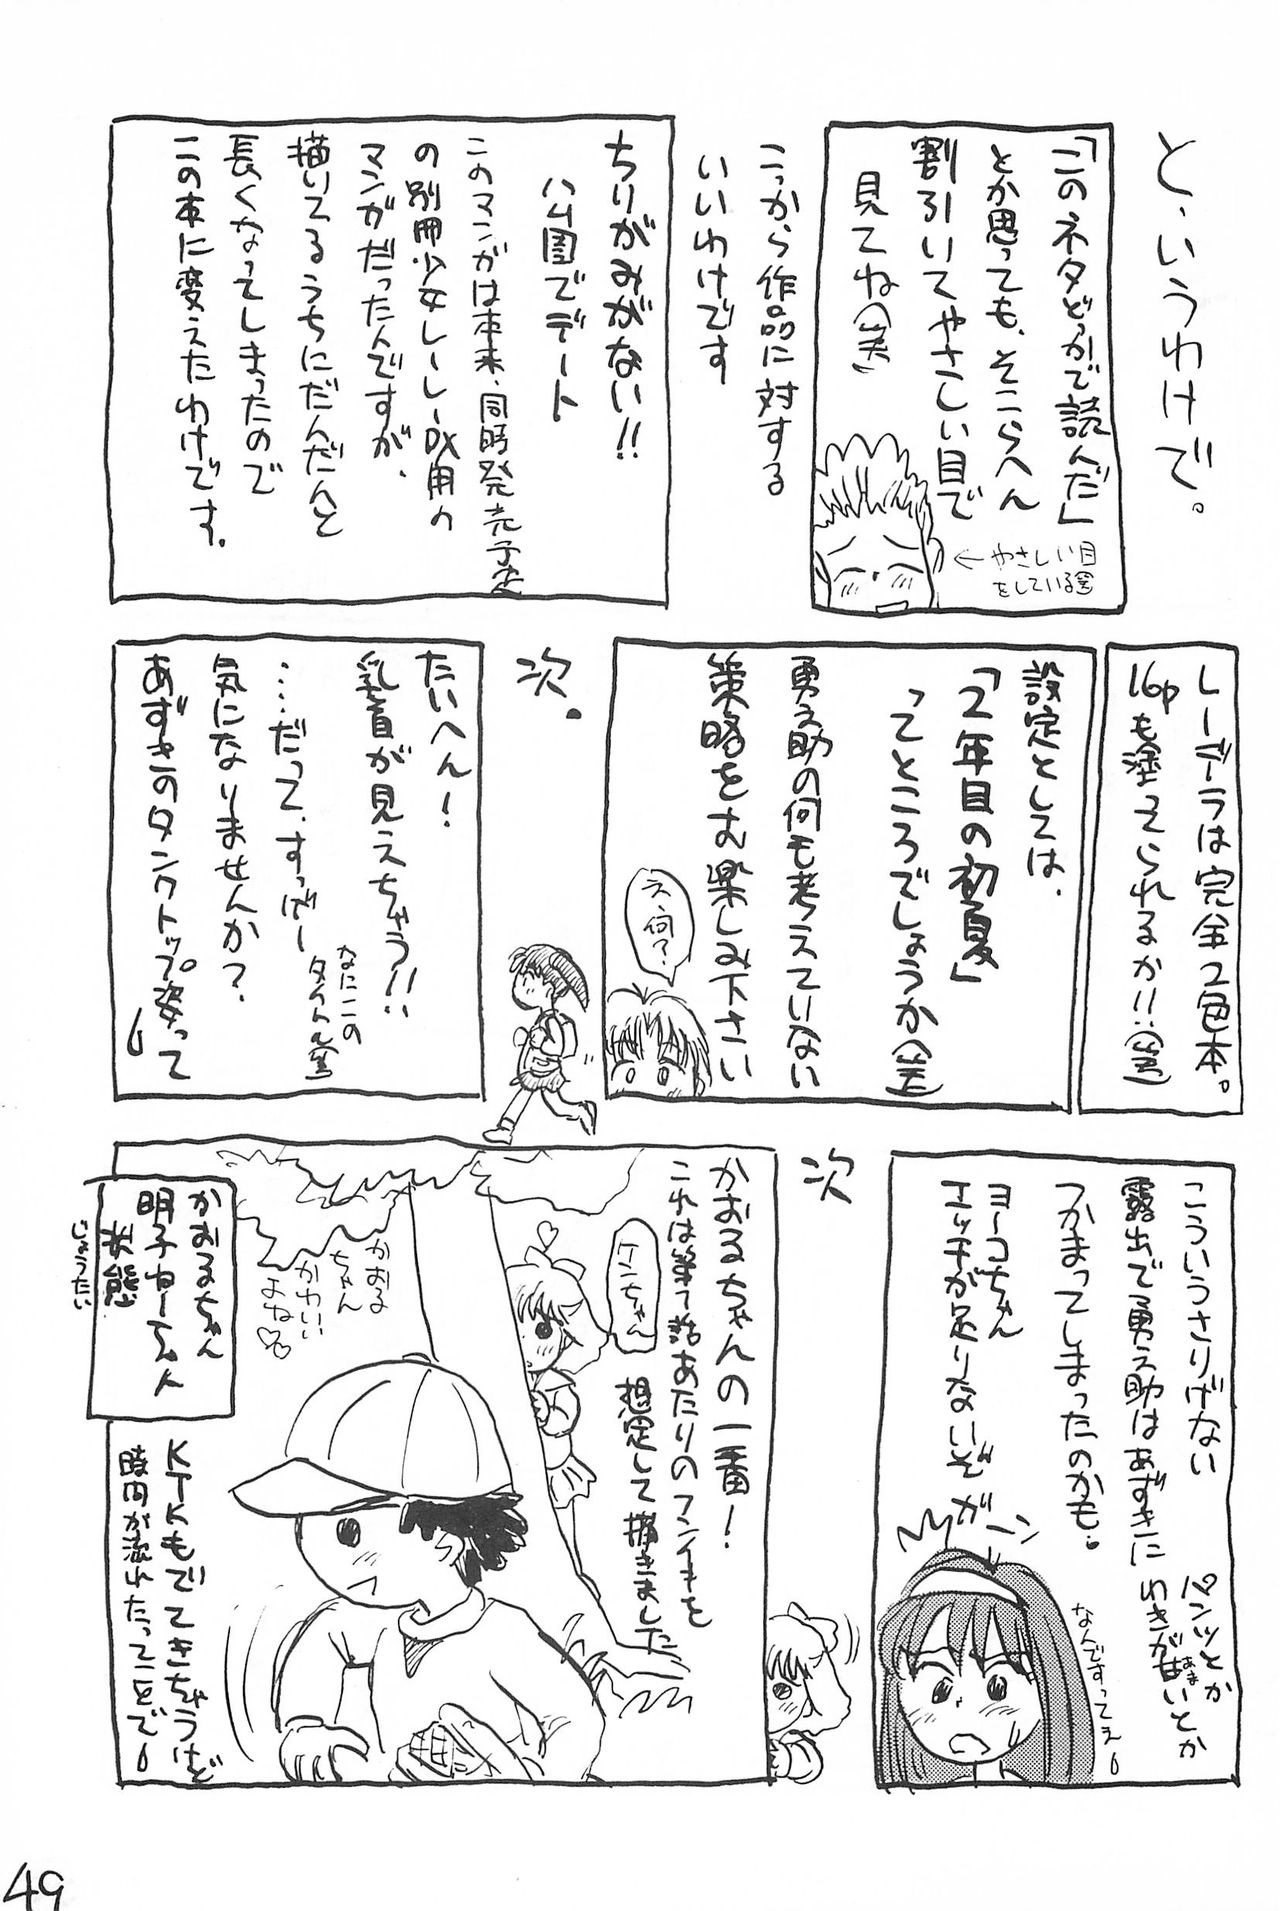 と、いうわけで。
「このネタどっかで読んだ」
とか思っても、そこらへん
割引いてやさしい目で
見てね(笑)
←やさしい目
をしている(笑)
こっから作品に対する
いいわけです
ちりがみがない!!
ハム園でデート
このマンガは本来、同時発売予定
の別冊少女レーレーDX用の
マンガだったんですが、
描いてるうちにだんだんと
長くなってしまったので
この本に変えたわけです。
レーデラは完全2色本。
16pも塗ってられるか!!(笑)
設定としては、
「2年目の初夏」
ってところでしょうか(笑)
勇之助の何も考えていない
策略をお楽しみ下さい
え、何?
次。
たいへん!
乳首が見えちゃう!!
なに、この
タイトル(笑)
……だって、すっげー
気になりませんか?
あずきのタンクトップ姿って
こういうさりげない
パンツとか
わきが甘いとか
あま
露出で勇之助はあずきに
つかまってしまったのかも。
ヨーコちゃん
エッチが足りないぞ
ガーン
なんですってぇ
次
かおるちゃんの一番!
これは第7話あたりのフンイキを
想定して描きました
ケンちゃん
かおる
ちゃん
かわいい
よね♡
かおるちゃん
明子ねーちゃん
状態
じょうたい
KTKもでてきちゃうけど
時間が流れたってことで
49